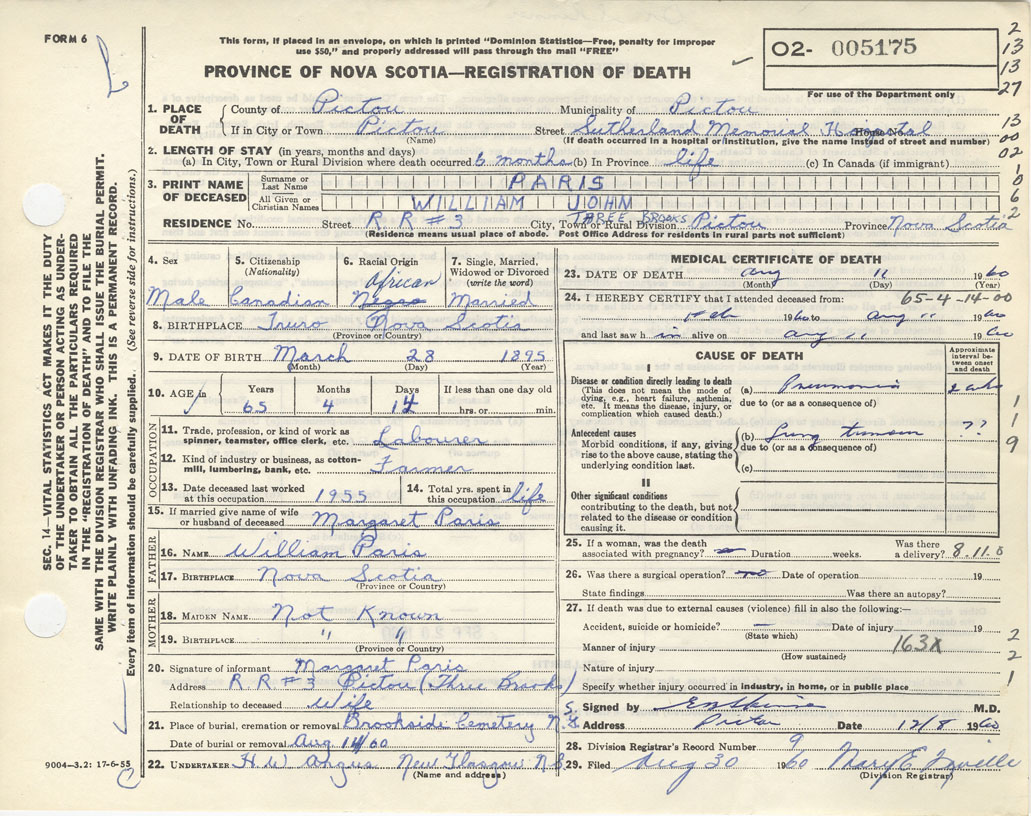 FORM 6
This form, if placed in an envelope, on which is printed "Dominion Statistics—Free, penalty for improper
use $50," and properly addressed will pass through the mail "FREE"
PROVINCE OF NOVA SCOTIA—REGISTRATION OF DEATH
O2- 005175
For use of the Department only
2
13
13
27
13
00
02
1
0
6
2
1. PLACE OF DEATH
County of Pictou Municipality of Pictou
If in City or Town Pictou Street Sutherland Memorial Hospital House No.
(Name) (If death occurred in a hospital or institution, give the name instead of street and number)
2. LENGTH OF STAY (in years, months and days)
(a) In City, Town or Rural Division where death occurred 6 months (b) In Province life (c) In Canada (if immigrant)
3. PRINT NAME OF DECEASED
Surname or Last Name PARIS
All Given or Christian Names WILLIAM JOHN
RESIDENCE No. Street R R #3 City, Town or Rural Division THREE BROOKS Pictou Province Nova Scotia
(Residence means usual place of abode. Post Office Address for residents in rural parts not sufficient)
4. Sex 5. Citizenship (Nationality) 6. Racial Origin 7. Single, Married, Widowed or Divorced (write the word)
African
Male Canadian Negro Married
8. BIRTHPLACE Truro Nova Scotia
(Province or Country)
9. DATE OF BIRTH March 28 1895
(Month) (Day) (Year)
10. AGE in Years Months Days If less than one day old
65 4 14 hrs. or min.
OCCUPATION
11. Trade, profession, or kind of work as spinner, teamster, office clerk, etc. Labourer
12. Kind of industry or business, as cotton-mill, lumbering, bank, etc. Farmer
13. Date deceased last worked at this occupation 1955 14. Total yrs. spent in this occupation life
15. If married give name of wife or husband of deceased Margaret Paris
FATHER
16. NAME William Paris
17. BIRTHPLACE Nova Scotia
(Province or Country)
MOTHER
18. MAIDEN NAME Not Known
19. BIRTHPLACE " "
(Province or Country)
20. Signature of informant Margaret Paris
Address R R #3 Pictou (Three Brooks)
Relationship to deceased Wife
21. Place of burial, cremation or removal Brookside Cemetery N.S.
Date of burial or removal Aug 14/60
22. UNDERTAKER H W Angus New Glasgow N.S.
(Name and address)
MEDICAL CERTIFICATE OF DEATH
23. DATE OF DEATH Aug 11 1960
(Month) (Day) (Year)
24. I HEREBY CERTIFY that I attended deceased from: 65-4-14-00
Feb 1960 to Aug 11 1960
and last saw him alive on Aug 11 1960
CAUSE OF DEATH
Approximate interval between onset and death
I
Disease or condition directly leading to death
(This does not mean the mode of dying, e.g., heart failure, asthenia, etc. It means the disease, injury, or complication which caused death.)
(a) Pneumonia
due to (or as a consequence of)
Antecedent causes
Morbid conditions, if any, giving rise to the above cause, stating the underlying condition last.
(b) Lung tumour ??
due to (or as a consequence of)
(c)
II
Other significant conditions
contributing to the death, but not related to the disease or condition causing it.
1
1
9
25. If a woman, was the death associated with pregnancy? — Duration weeks. Was there a delivery? 8.11.0
26. Was there a surgical operation? no Date of operation 19
State findings Was there an autopsy?
27. If death was due to external causes (violence) fill in also the following:—
Accident, suicide or homicide? — Date of injury 19
(State which)
Manner of injury 163X
(How sustained)
Nature of injury
Specify whether injury occurred in industry, in home, or in public place
2
2
1
Signed by M.D.
Address Pictou Date 12/8 1960
28. Division Registrar's Record Number 9
29. Filed Aug 30 1960 Mary E
(Division Registrar)
SEC. 14—VITAL STATISTICS ACT MAKES IT THE DUTY
OF THE UNDERTAKER OR PERSON ACTING AS UNDER-
TAKER TO OBTAIN ALL THE PARTICULARS REQUIRED
IN THE "REGISTRATION OF DEATH" AND TO FILE THE
SAME WITH THE DIVISION REGISTRAR WHO SHALL ISSUE THE BURIAL PERMIT.
WRITE PLAINLY WITH UNFADING INK. THIS IS A PERMANENT RECORD.
Every item of information should be carefully supplied. (See reverse side for instructions.)
9004—3.2: 17-6-55